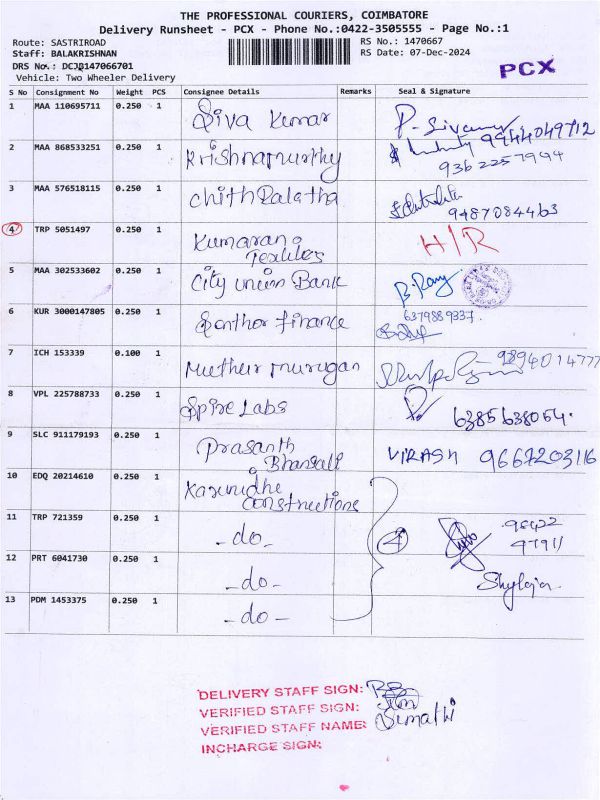 THE PROFESSIONAL COURIERS, COIMBATORE
Delivery Runsheet - PCX - Phone No.:0422-3505555 - Page No.:1
Route: SASTRIROAD
RS No.: 1470667
Staff: BALAKRISHNAN
RS Date: 07-Dec-2024
DRS No.: DCJB147066701
Vehicle: Two Wheeler Delivery
PCX
S No Consignment No Weight PCS Consignee Details Remarks Seal & Signature
1 MAA 110695711 0.250 1 Siva Kumar 9944049712
2 MAA 868533251 0.250 1 Krishnamurthy 9362257994
3 MAA 576518115 0.250 1 Chithralatha 9487084463
4 TRP 5051497 0.250 1 Kumaran Textiles H/R
5 MAA 302533602 0.250 1 City union Bank
6 KUR 3000147805 0.250 1 Santhor finance 6379889337.
7 ICH 153339 0.100 1 Muthu murugan 9894014777
8 VPL 225788733 0.250 1 Spire Labs 6385638054.
9 SLC 911179193 0.250 1 Prasanth Bhansali VIRASH 9667203116
10 EDQ 20214610 0.250 1 Karunidhe Constructions
11 TRP 721359 0.250 1 -do- 4 98422 97911
12 PRT 6041730 0.250 1 -do- Shylaja.
13 PDM 1453375 0.250 1 -do-
DELIVERY STAFF SIGN:
VERIFIED STAFF SIGN:
VERIFIED STAFF NAME: Sumathi
INCHARGE SIGN: